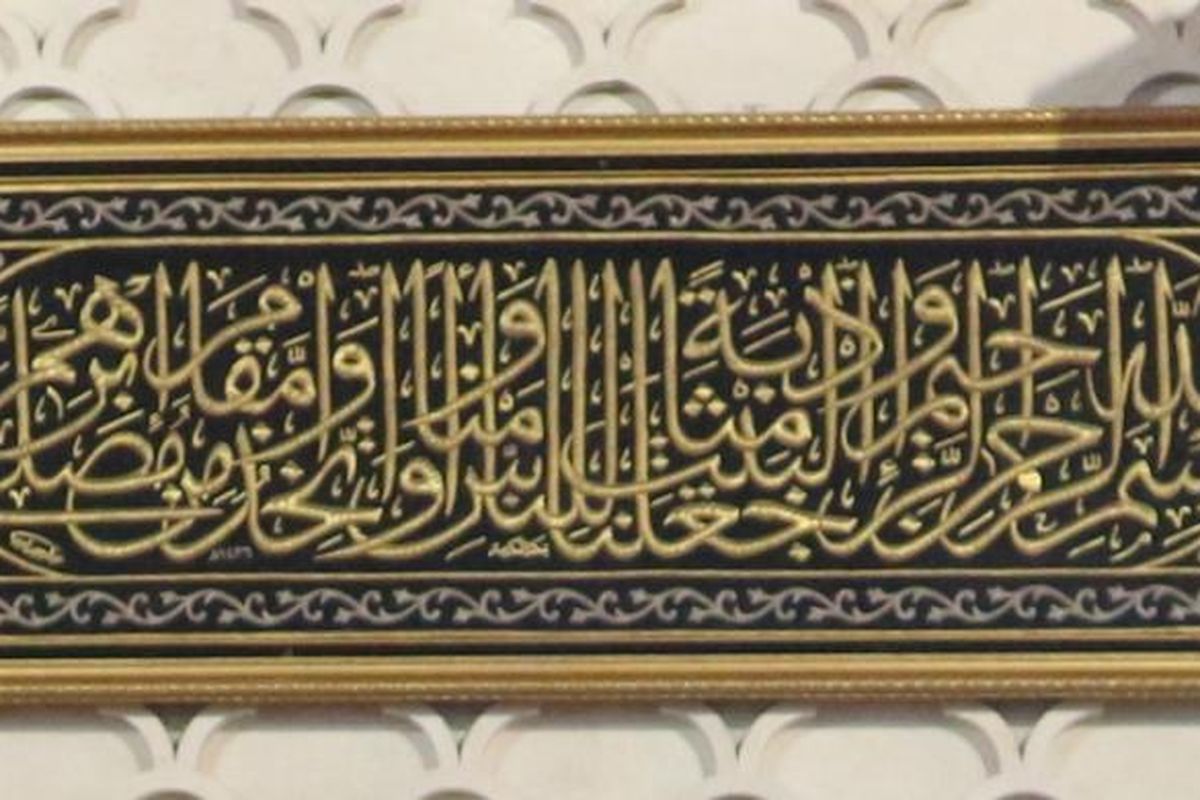 بسم الله الرحمن الرحيم وإذ جعلنا البيت مثابة للناس وأمنا واتخذوا من مقام إبراهيم مصلى